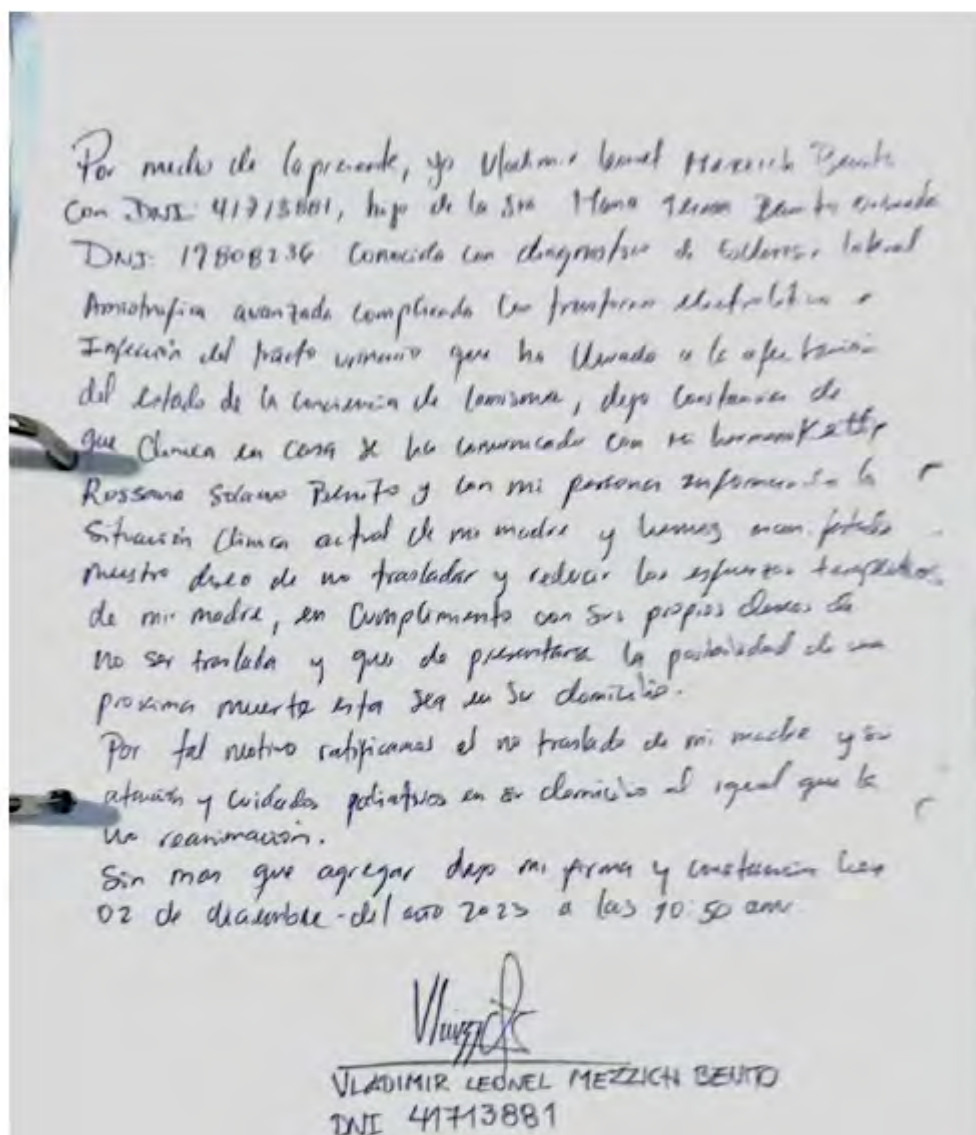 Por medio de la presente, yo Vladimir Leonel Mezzich Benito
con DNI: 41713881, hijo de la Sra Maria Teresa Benito
DNI: 17808236 Conocida con diagnostico de Esclerosis lateral
Amiotrofica avanzada complicada con trastorno electrolitico e
Infección del tracto urinario que ha llevado a la afectación
del estado de la conciencia de la misma, dejo constancia de
que Clinica en casa se ha comunicado con mi hermana Ketty
Rossana Solano Benito y con mi persona informando la
situación clinica actual de mi madre y hemos manifestado
nuestro deseo de no trasladar y reducir los esfuerzos terapeuticos
de mi madre, en cumplimiento con sus propios deseos de
no ser traslada y que de presentarse la posibilidad de una
proxima muerte esta sea en su domicilio.
Por tal motivo ratificamos el no traslado de mi madre y su
atención y cuidados paliativos en su domicilio al igual que la
no reanimación.
Sin mas que agregar dejo mi firma y constancia hoy
02 de diciembre del año 2023 a las 10:50 am
VLADIMIR LEONEL MEZZICH BENITO
DNI 41713881